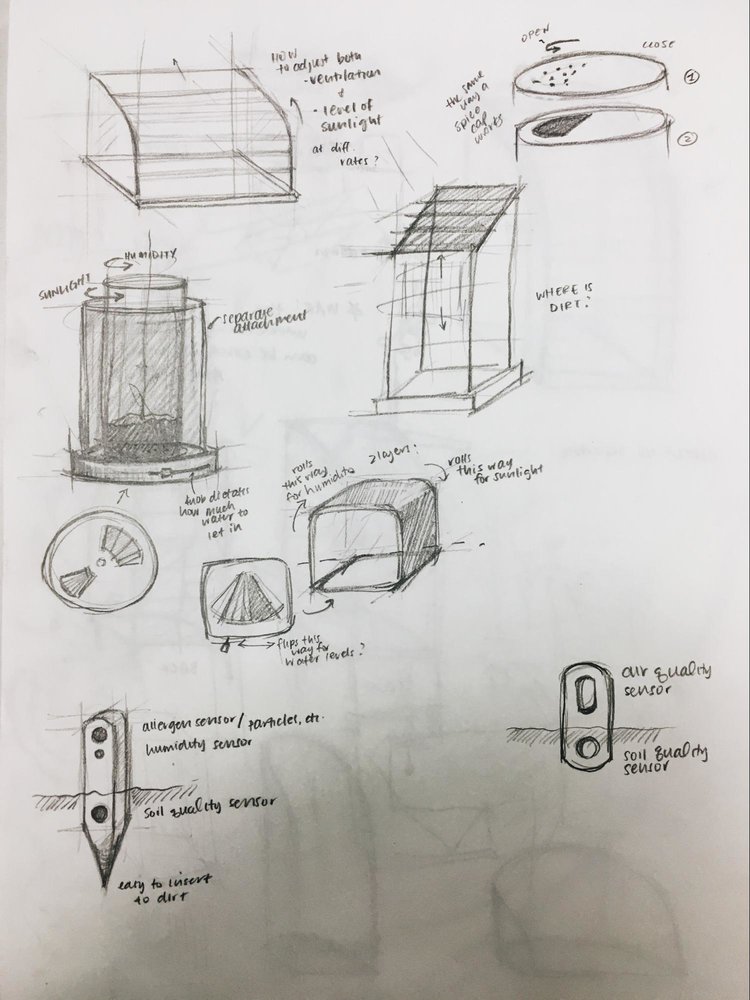 HOW
to adjust both
- ventilation
+
- level of
sunlight
at diff.
rates?
OPEN
CLOSE
the same
way a
spice
cap
works
1
2
HUMIDITY
SUNLIGHT
separate
attachment
WHERE IS
DIRT?
knob dictates
how much
water to
let in
rolls
this way
for humidity
2 layers:
rolls
this way
for sunlight
flips this
way for
water levels?
allergen sensor / particles, etc.
humidity sensor
soil quality sensor
easy to insert
to dirt
air quality
sensor
soil quality
sensor